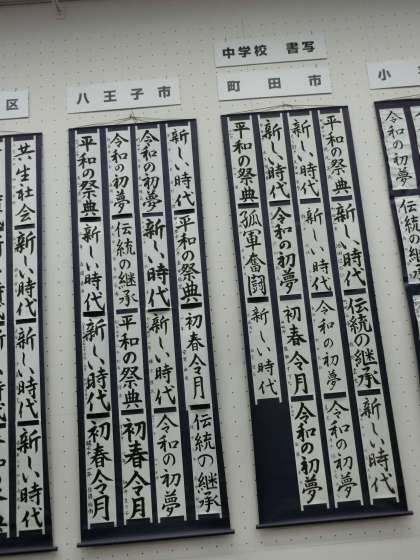 区
八王子市
中学校 書写
町田市
小
共生社会
新しい時代
新しい時代
新しい時代
新しい時代
平和の祭典
初春令月
伝統の継承
令和の初夢
新しい時代
新しい時代
令和の初夢
令和の初夢
伝統の継承
平和の祭典
初春令月
平和の祭典
新しい時代
新しい時代
初春令月
平和の祭典
新しい時代
伝統の継承
新しい時代
新しい時代
新しい時代
令和の初夢
令和の初夢
新しい時代
令和の初夢
初春令月
令和の初夢
平和の祭典
孤軍奮闘
新しい時代
令和の初夢